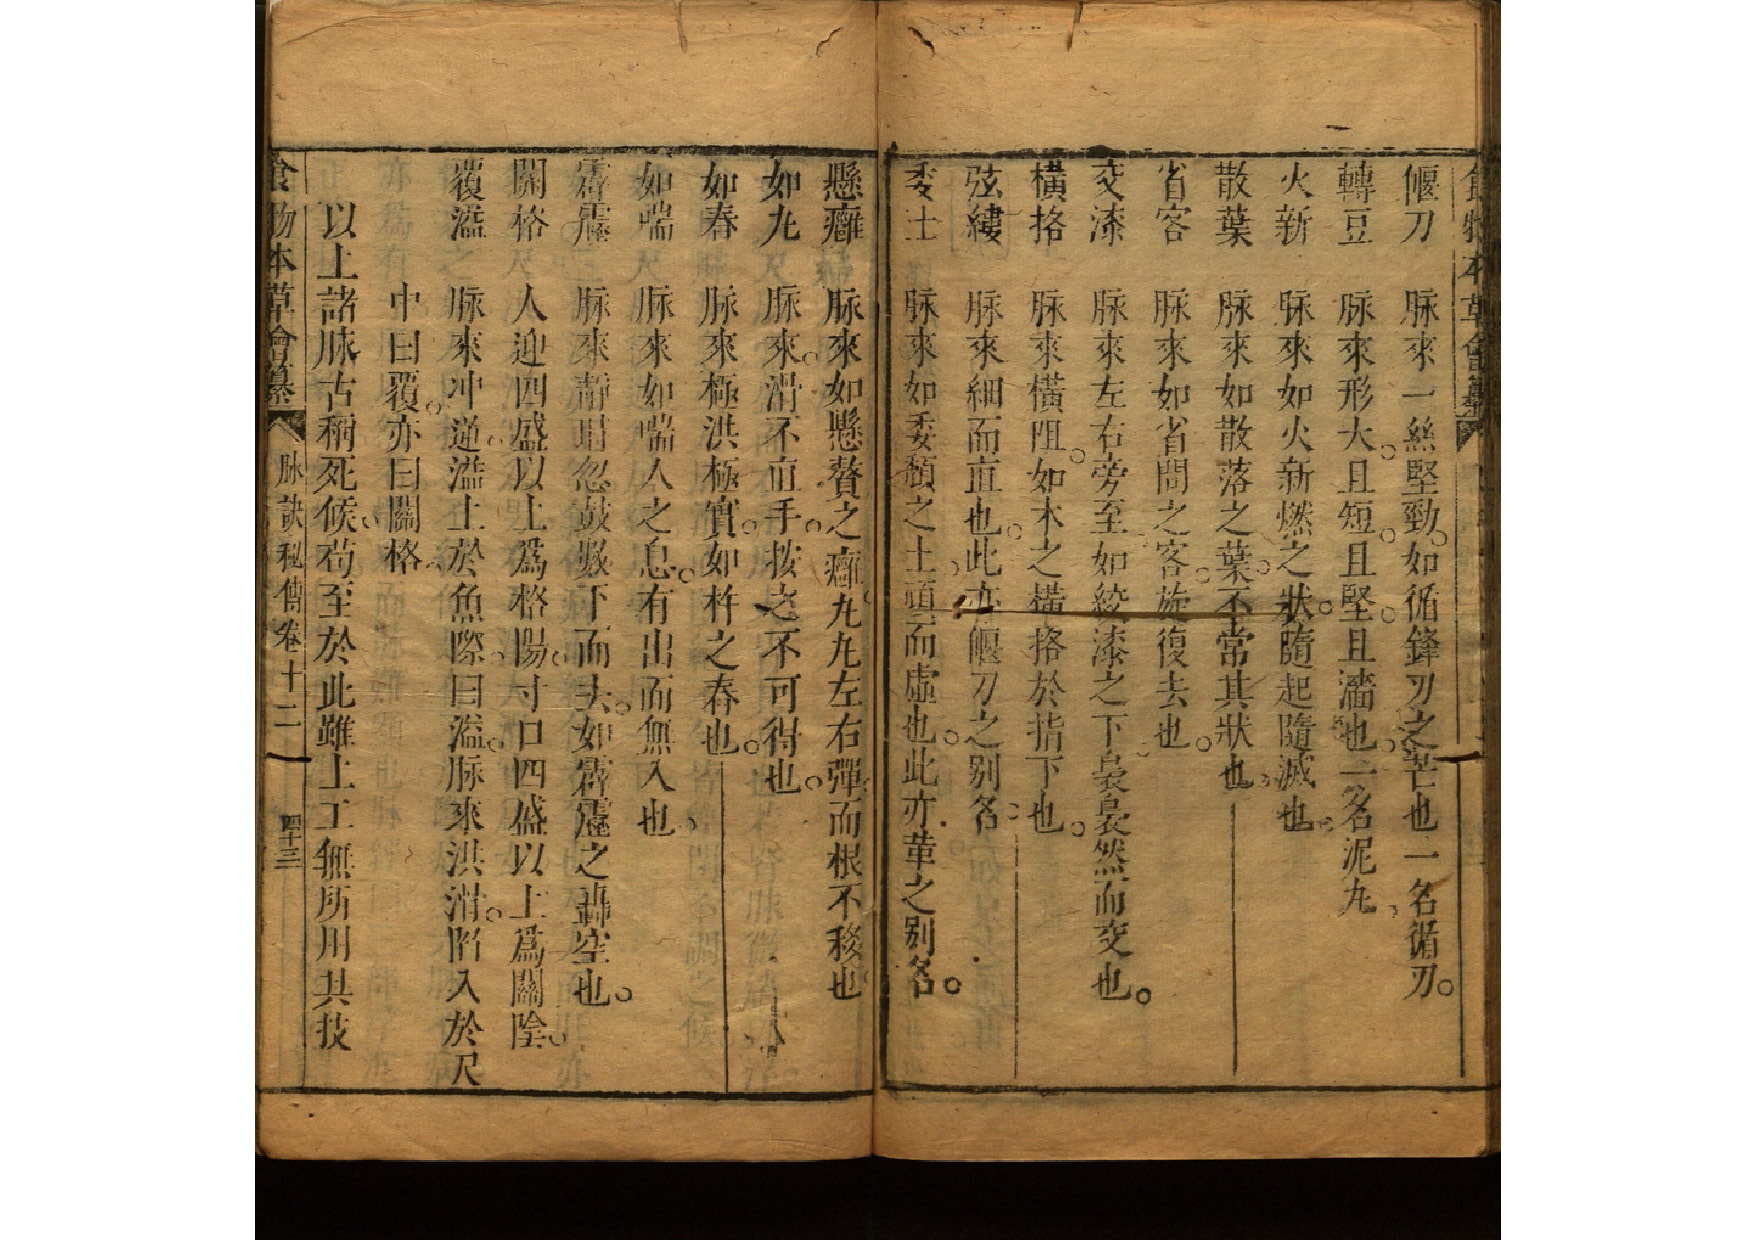 食物本草會纂
偃刀　脈來一絲堅勁如循鋒刃之芒也一名循刃
轉豆　脈來形大且短且堅且濇也一名泥丸
火新　脈來如火新燃之狀隨起隨滅也
散葉　脈來如散落之葉不常其狀也
省客　脈來如省問之客旋復去也
交漆　脈來左右旁至如絞漆之下裊裊然而交也
橫格　脈來橫阻如木之橫挌於指下也
弦縷　脈來細而直也此亦偃刀之别名
委土　脈來如委頹之土頑而虛也此亦革之别名
懸癰　脈來如懸贅之癰丸丸左右彈而根不移也
如丸　脈來滑不直手按之不可得也
如舂　脈來極洪極實如杵之舂也
如喘　脈來如喘人之息有出而無入也
霹靂　脈來靜時忽鼓數下而去如霹靂之轟空也
關格　人迎四盛以上爲格陽寸口四盛以上爲關陰
覆溢　脈來冲逆溢上於魚際曰溢脈來洪滑陷入於尺
中曰覆亦曰關格
以上諸脉古稱死候苟至於此雖上工無所用其技
食物本草會纂　脉訣秘傳卷十二　四十三